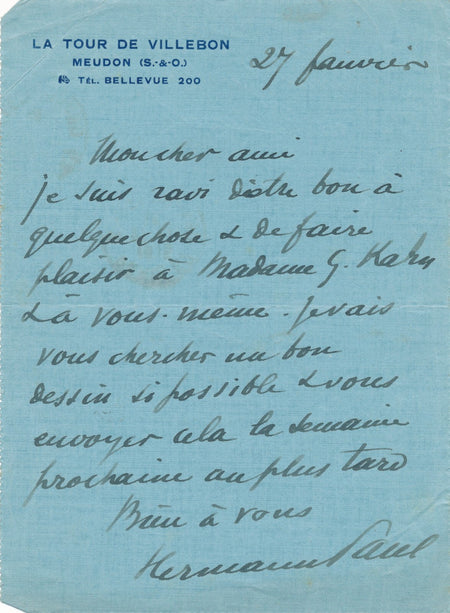 LA TOUR DE VILLEBON
MEUDON (S.-&-O.)
TÉL. BELLEVUE 200
27 Janvier
Mon cher ami
je suis ravi d'être bon à
quelque chose & de faire
plaisir à Madame G. Kahn
& à vous-même. Je vais
vous chercher un bon
dessin si possible & vous
envoyer cela la semaine
prochaine au plus tard
Bien à vous
Hermann Paul